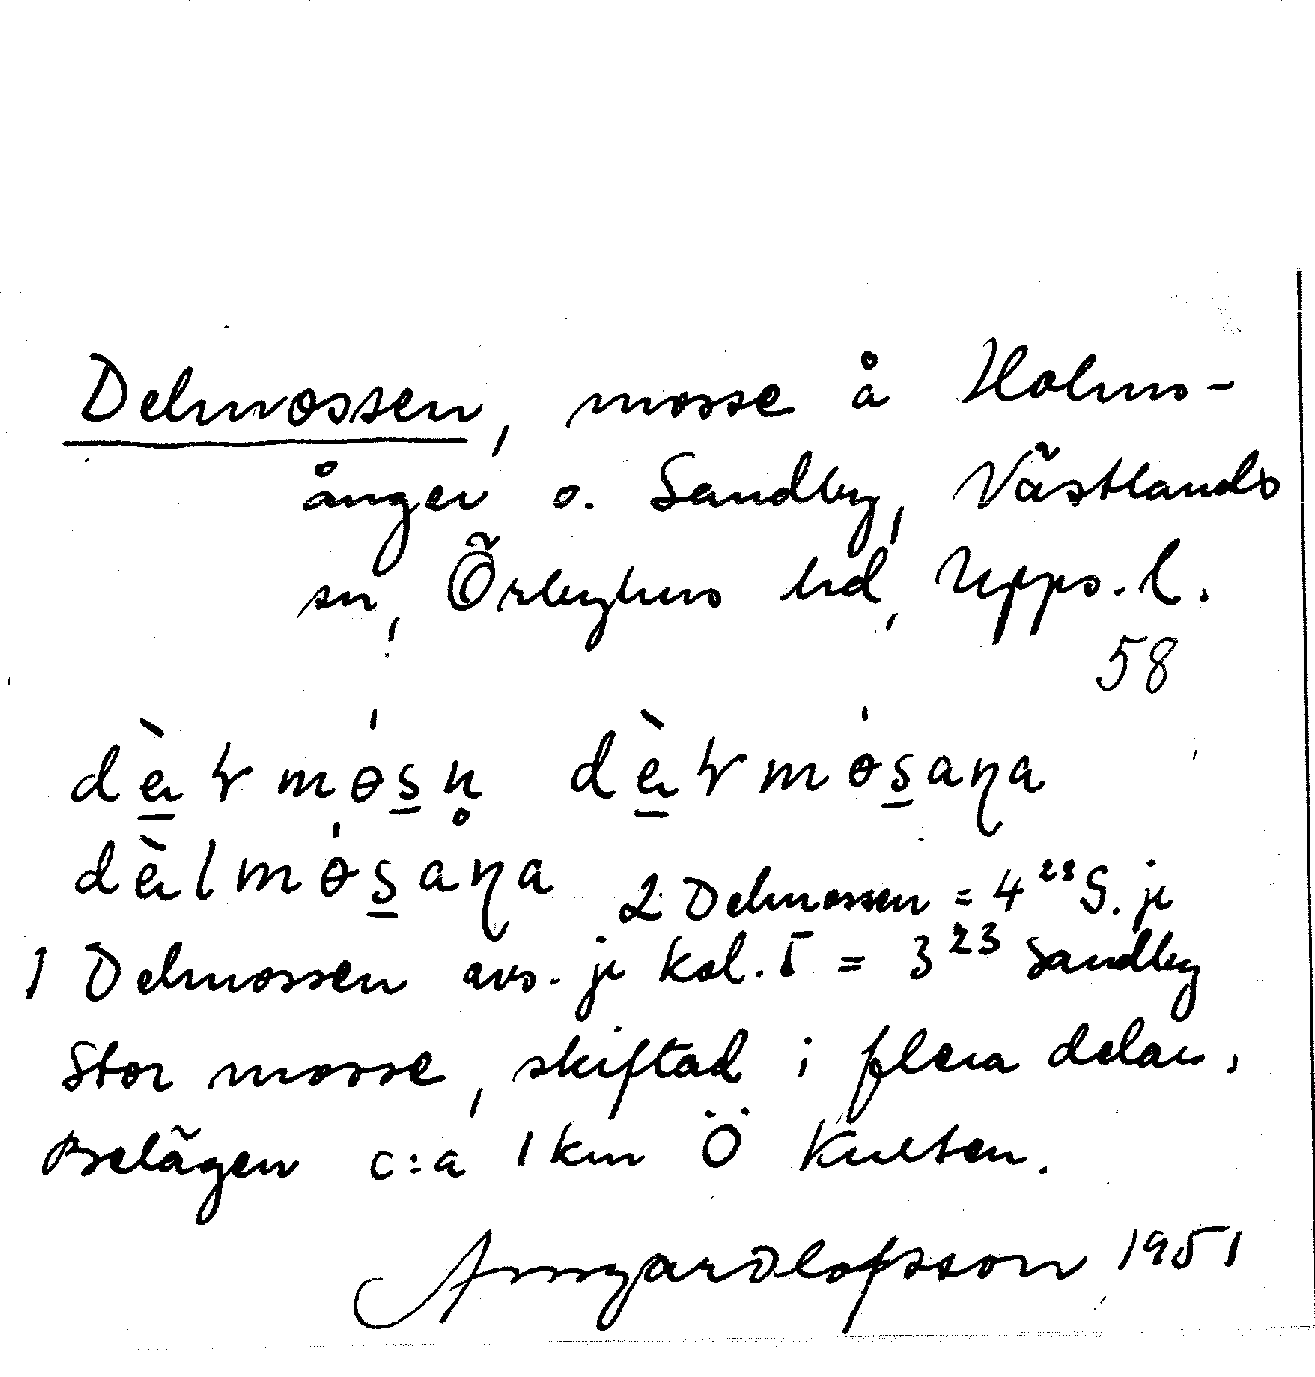 Delmossen, mosse å Holms-
ånger o. Sandby, Västlands
sn, Örbyhus hd, Upps. l.
58
2 Delmossen = 4²³ S. je
1 Delmossen avs. je kal. 5 = 3²³ Sandby
Stor mosse, skiftad i flera delar,
Belägen c:a 1 km Ö Kulten.
Armgard Olofsson 1951